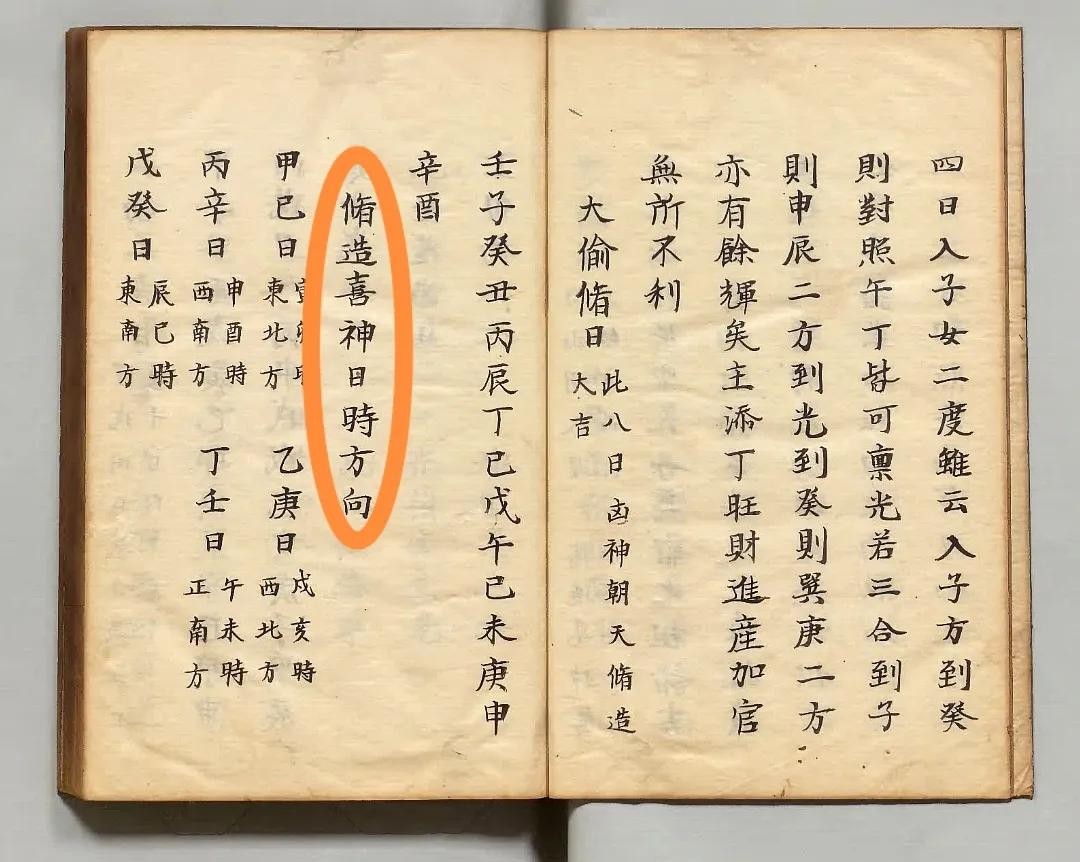 四日入子女二度雖云入子方到癸
則對照午丁皆可稟光若三合到子
則申辰二方到光到癸則巽庚二方
亦有餘輝矣主添丁旺財進產加官
無所不利
大偷脩日此八日凶神朝天脩造大吉
壬子癸丑丙辰丁巳戊午己未庚申
辛酉
脩造喜神日時方向
甲己日東北方乙庚日戌亥時西北方
丙辛日申酉時西南方丁壬日午未時正南方
戊癸日辰巳時東南方